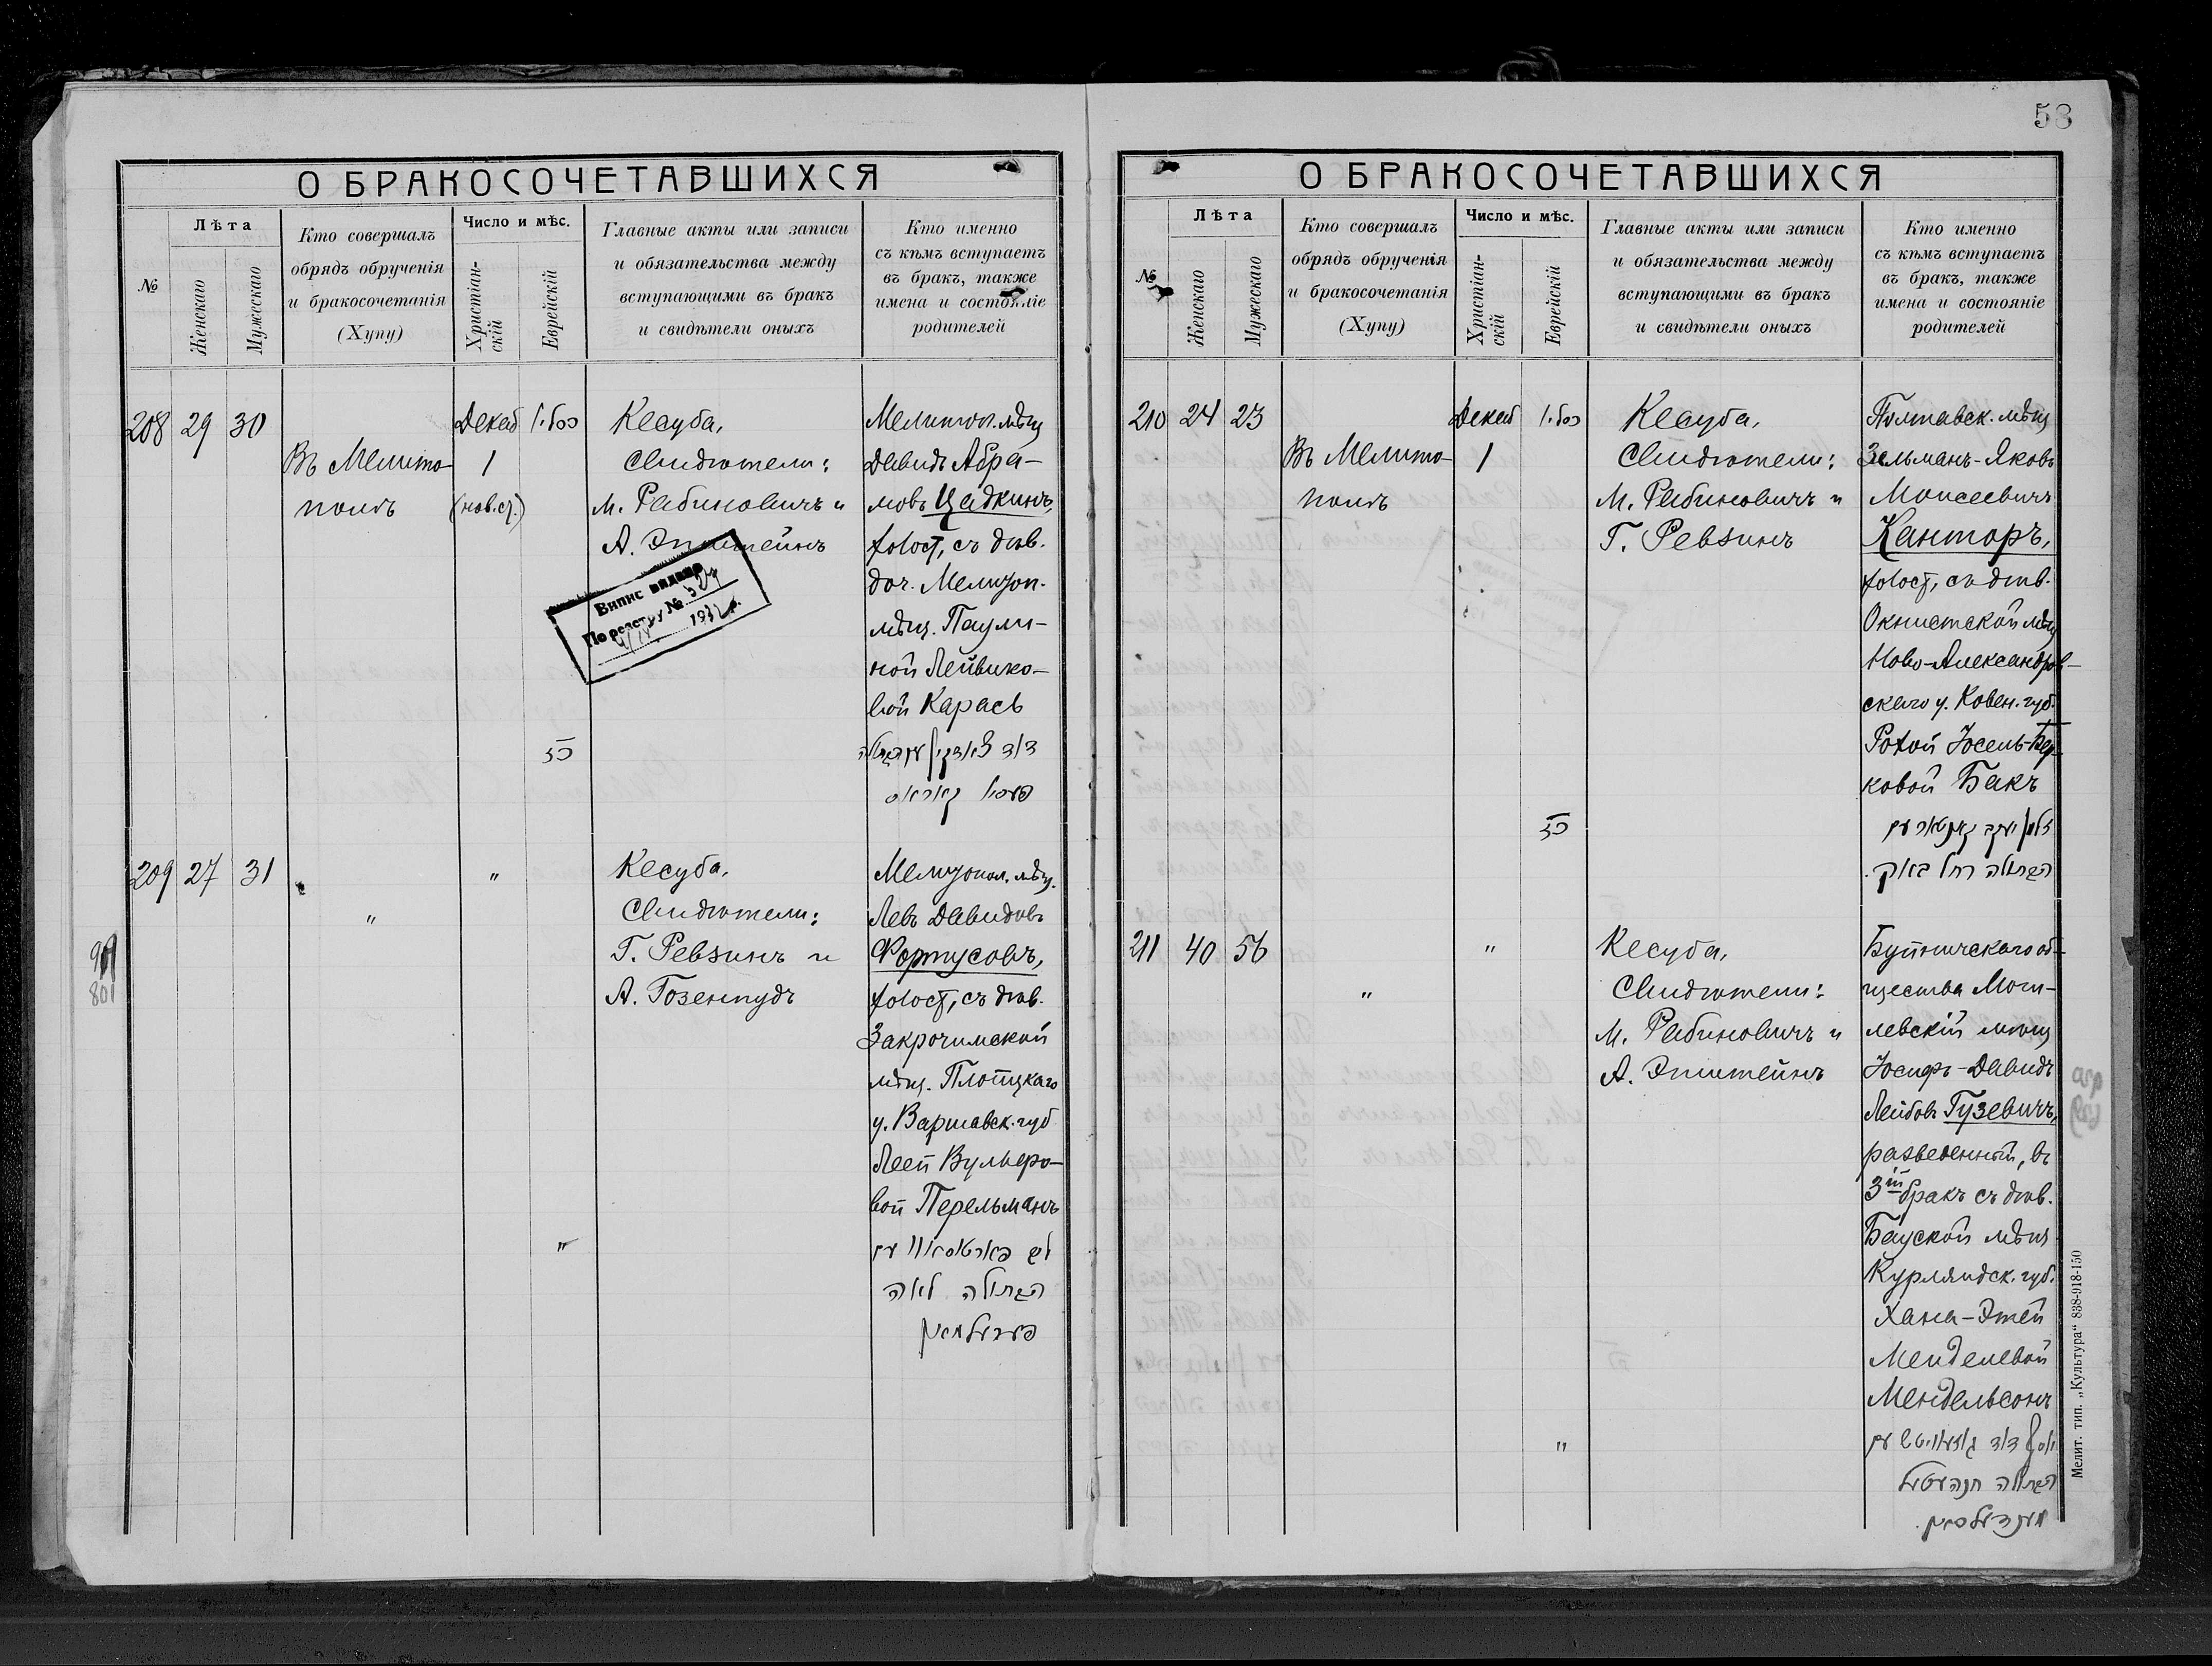 58
О БРАКОСОЧЕТАВШИХСЯ
№
Лѣта
Женскаго
Мужескаго
Кто совершалъ
обрядъ обрученія
и бракосочетанія
(Хупу)
Число и мѣс.
Христіан-
скій
Еврейскій
Главные акты или записи
и обязательства между
вступающими въ бракъ
и свидѣтели оныхъ
Кто именно
съ кѣмъ вступаетъ
въ бракъ, также
имена и состояніе
родителей
208 29 30
Въ Мелито-
полѣ
Декаб
1
(нов.ст.)
כסלו
Кесуба,
Свидѣтели:
М. Рабиновичъ и
А. Эпштейнъ
Випис видано
По реєстру №
193
Мелитоп. мѣщ
Давидъ Абра-
мовъ Цадкинъ,
холост, съ дѣв.
доч. Мелитоп.
мѣщ. Паули-
ной Лейвико-
вой Карась
דוד צאדקין עם הבתולה
209 27 31
"
"
Кесуба.
Свидѣтели:
Г. Ревзинъ и
А. Гозенпудъ
Мелитопол. мѣщ.
Левъ Давидовъ
Фортусовъ,
холост, съ дѣв.
Закрочимской
мѣщ. Плотцкаго
у. Варшавск. губ
Леей Вульфо-
вой Перельманъ
"
הבתולה לאה
פערעלמאן
О БРАКОСОЧЕТАВШИХСЯ
№
Лѣта
Женскаго
Мужескаго
Кто совершалъ
обрядъ обрученія
и бракосочетанія
(Хупу)
Число и мѣс.
Христіан-
скій
Еврейскій
Главные акты или записи
и обязательства между
вступающими въ бракъ
и свидѣтели оныхъ
Кто именно
съ кѣмъ вступаетъ
въ бракъ, также
имена и состояніе
родителей
210 24 23
Въ Мелито-
полѣ
Декаб
1
כסלו
Кесуба,
Свидѣтели:
М. Рабиновичъ и
Г. Ревзинъ
Полтавск. мѣщ
Зельманъ-Яковъ
Моисеевичъ
Канторъ,
холост, съ дѣв.
Окнистской мѣщ
Ново-Александров-
скаго у. Ковен. губ.
Рохой Іосель-Бер-
ковой Бакъ
זלמן יעקב קאנטאר עם
הבתולה רחל באק.
211 40 56
"
"
Кесуба,
Свидѣтели:
М. Рабиновичъ и
А. Эпштейнъ
Буйничскаго об-
щества Моги-
левскій мѣщ
Іосифъ-Давидъ
Лейбовъ Гузевичъ,
разведенный, въ
3й бракъ съ дѣв.
Бауской мѣщ
Курляндск. губ.
Хана-Этей
Менделевой
Мендельсонъ
"
יוסף דוד גוזעוויטש עם
הבתולה חנה עטעל
מענדעלסאן.
Мелит. тип. „Культура“ 838-918-150